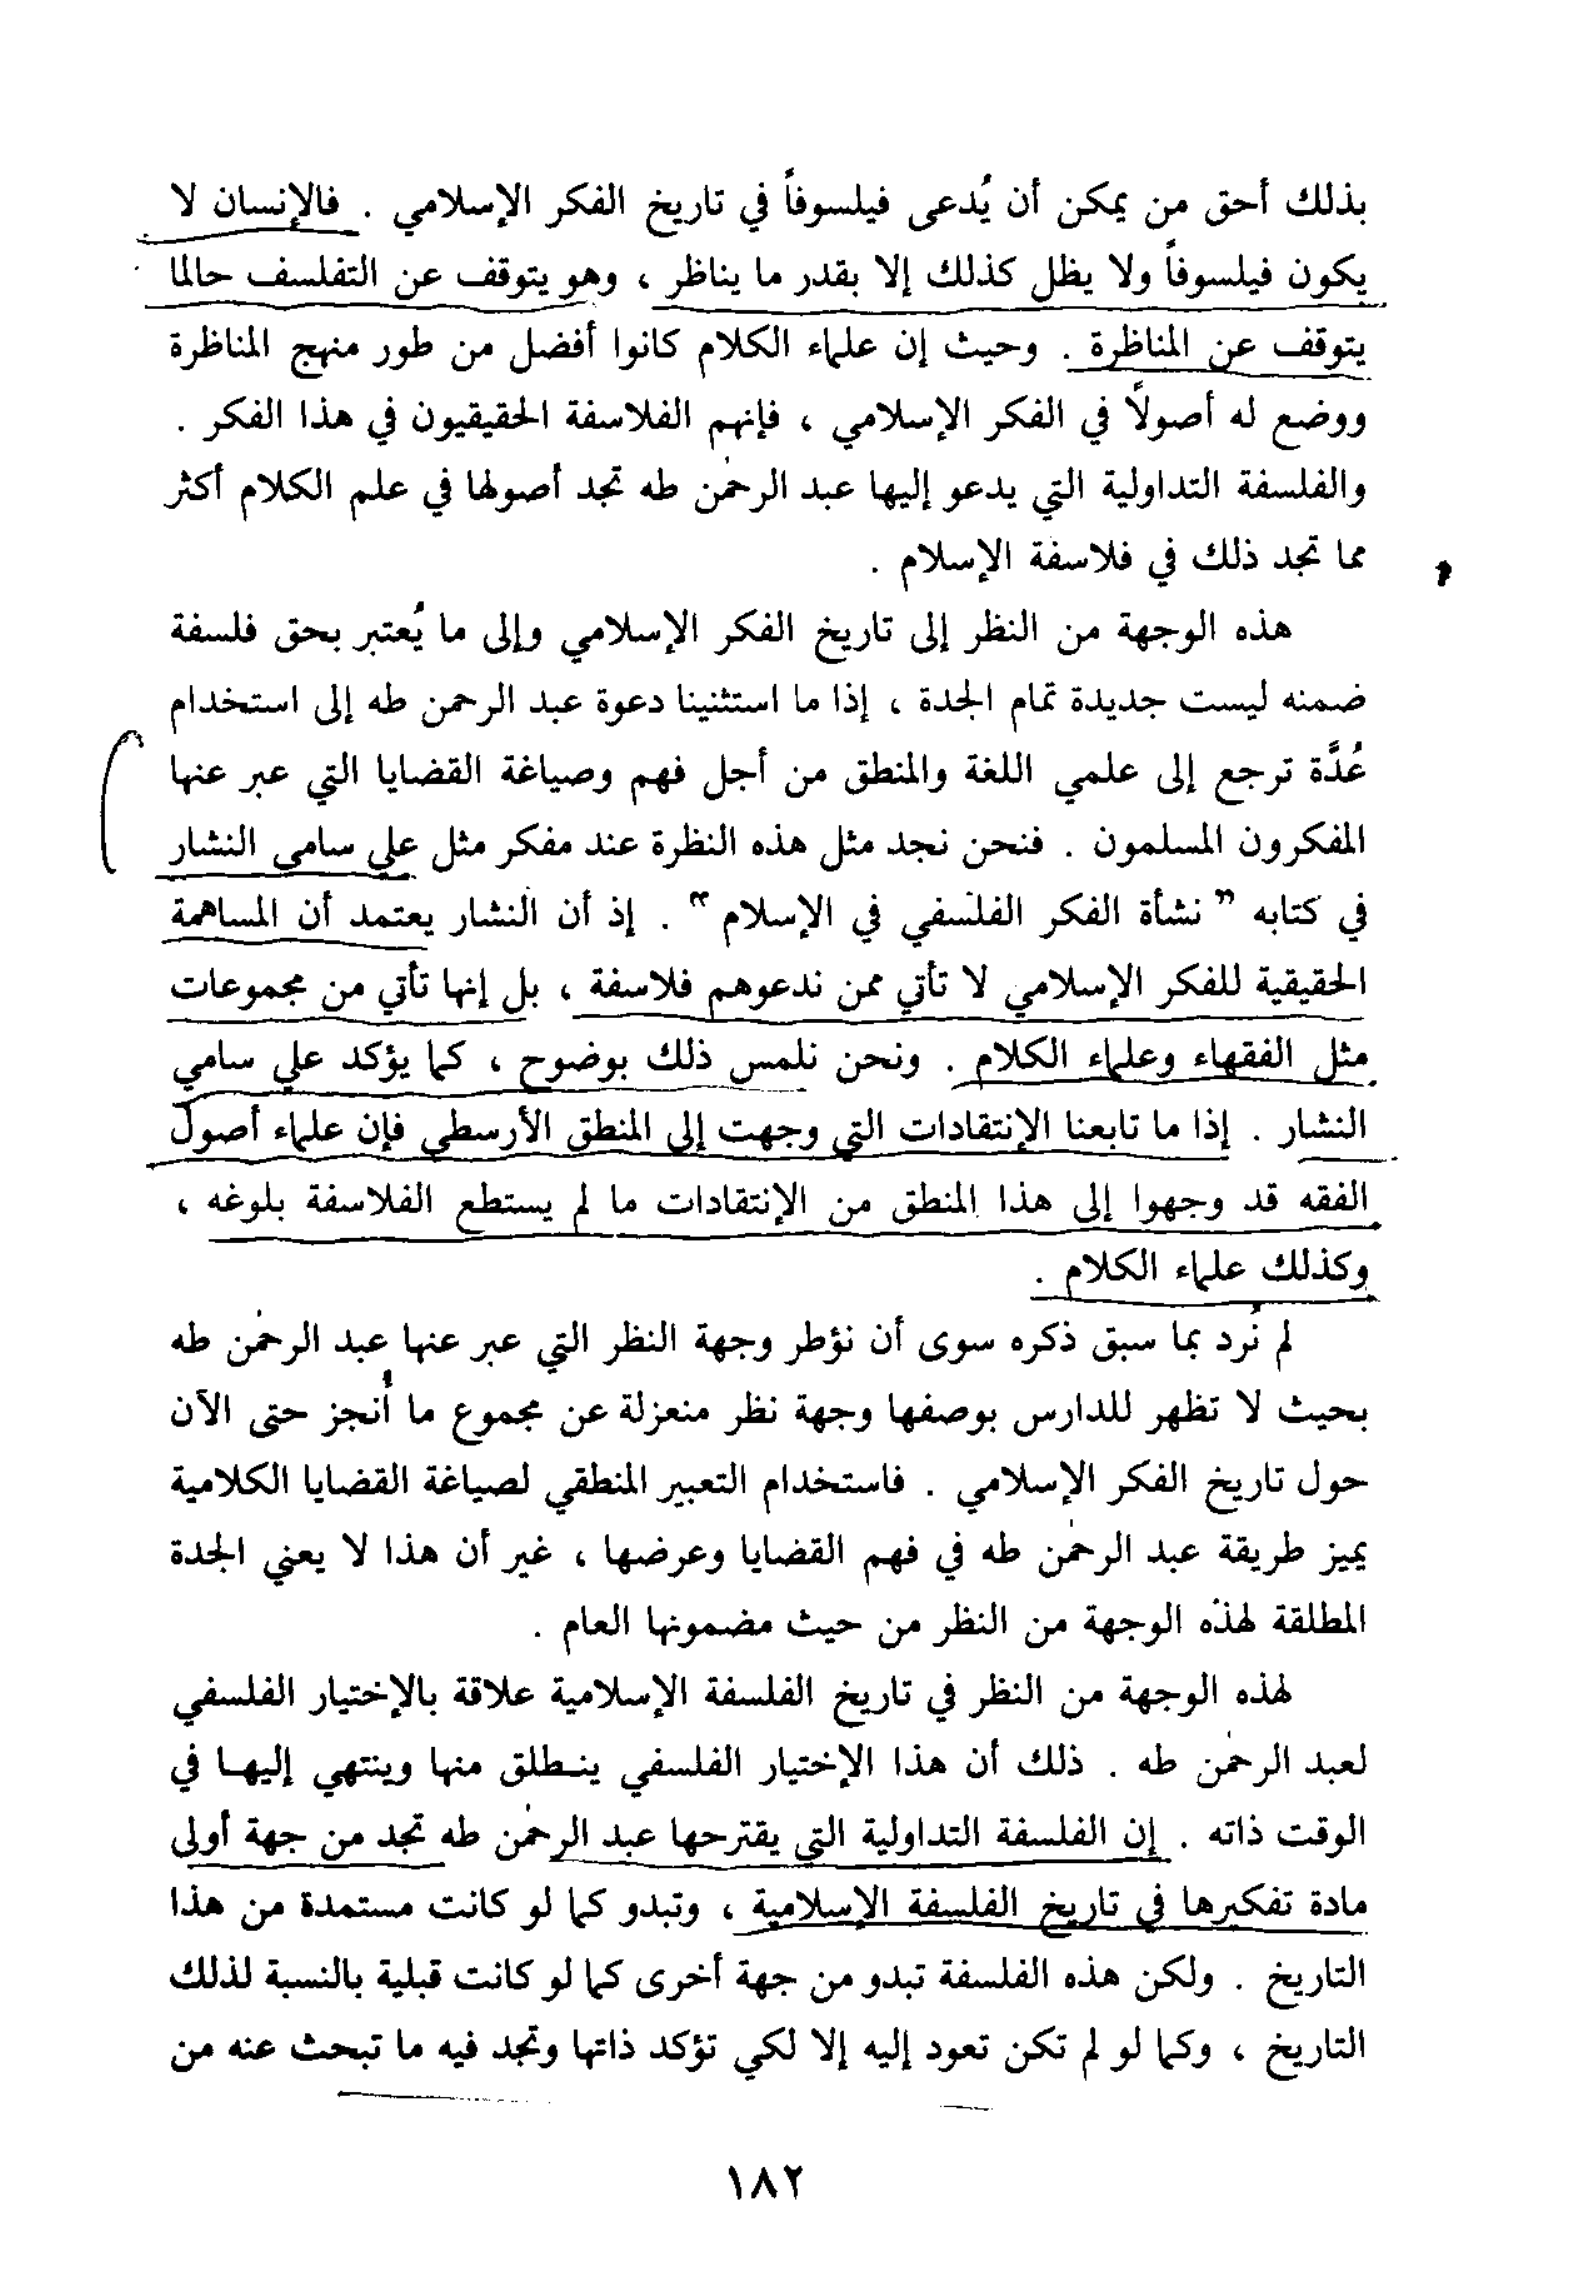 بذلك أحق من يمكن أن يُدعى فيلسوفاً في تاريخ الفكر الإسلامي . فالإنسان لا
يكون فيلسوفاً ولا يظل كذلك إلا بقدر ما يناظر ، وهو يتوقف عن التفلسف حالما
يتوقف عن المناظرة . وحيث إن علماء الكلام كانوا أفضل من طور منهج المناظرة
ووضع له أصولاً في الفكر الإسلامي ، فإنهم الفلاسفة الحقيقيون في هذا الفكر .
والفلسفة التداولية التي يدعو إليها عبد الرحمٰن طه تجد أصولها في علم الكلام أكثر
مما تجد ذلك في فلاسفة الإسلام .
هذه الوجهة من النظر إلى تاريخ الفكر الإسلامي وإلى ما يُعتبر بحق فلسفة
ضمنه ليست جديدة تمام الجدة ، إذا ما استثنينا دعوة عبد الرحمن طه إلى استخدام
عُدَّة ترجع إلى علمي اللغة والمنطق من أجل فهم وصياغة القضايا التي عبر عنها
المفكرون المسلمون . فنحن نجد مثل هذه النظرة عند مفكر مثل علي سامي النشار
في كتابه " نشأة الفكر الفلسفي في الإسلام " . إذ أن النشار يعتمد أن المساهمة
الحقيقية للفكر الإسلامي لا تأتي ممن ندعوهم فلاسفة ، بل إنها تأتي من مجموعات
مثل الفقهاء وعلماء الكلام . ونحن نلمس ذلك بوضوح ، كما يؤكد علي سامي
النشار . إذا ما تابعنا الإنتقادات التي وجهت إلى المنطق الأرسطي فإن علماء أصول
الفقه قد وجهوا إلى هذا المنطق من الإنتقادات ما لم يستطع الفلاسفة بلوغه ،
وكذلك علماء الكلام .
لم نُرد بما سبق ذكره سوى أن نؤطر وجهة النظر التي عبر عنها عبد الرحمٰن طه
بحيث لا تظهر للدارس بوصفها وجهة نظر منعزلة عن مجموع ما أُنجز حتى الآن
حول تاريخ الفكر الإسلامي . فاستخدام التعبير المنطقي لصياغة القضايا الكلامية
يميز طريقة عبد الرحمٰن طه في فهم القضايا وعرضها ، غير أن هذا لا يعني الجدة
المطلقة لهذه الوجهة من النظر من حيث مضمونها العام .
لهذه الوجهة من النظر في تاريخ الفلسفة الإسلامية علاقة بالإختيار الفلسفي
لعبد الرحمٰن طه . ذلك أن هذا الإختيار الفلسفي ينـطلق منها وينتهي إليهـا في
الوقت ذاته . إن الفلسفة التداولية التي يقترحها عبد الرحمٰن طه تجد من جهة أولى
مادة تفكيرها في تاريخ الفلسفة الإسلامية ، وتبدو كما لو كانت مستمدة من هذا
التاريخ . ولكن هذه الفلسفة تبدو من جهة أخرى كما لو كانت قبلية بالنسبة لذلك
التاريخ ، وكما لو لم تكن تعود إليه إلا لكي تؤكد ذاتها وتجد فيه ما تبحث عنه من
١٨٢